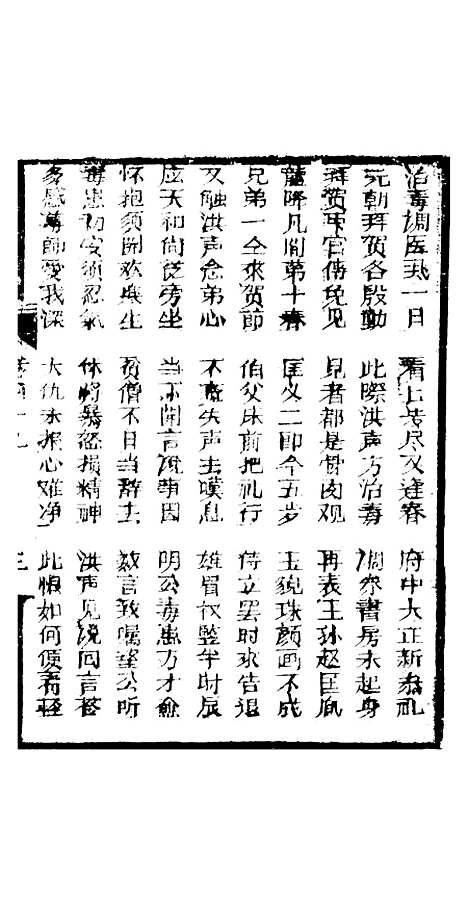 治毒调医一日　看〻岁尽又逢春　府中大正新恭礼
元朝拜贺各殷勤　此際洪声方治毒　调养書房未起身
拜贺下官傳免见　見者都是骨肉观　再表王孙赵匡胤
龍降凡间第十春　匡义二郎今五岁　玉貌珠颜画不成
兄弟一仝來贺節　伯父床前把礼行　侍立罢时求告退
又触洪声念弟心　不觉失声去嘆息　半时辰
应天和尚从旁坐　当下開言说事因　明公毒患方才愈
怀抱须開欢　贫僧不日当辞去　数言致嘱望公听
毒患初安须忍氣　休将暴怒损精神　洪声见说回言答
多感尊師愛我深　大仇未报心难净　此恨如何便看轻